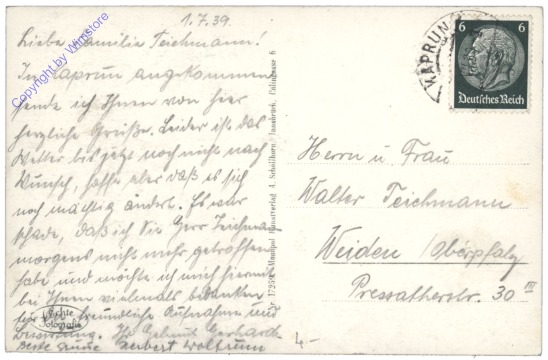 1.7.39.
Liebe Familie Teichmann!
In Kaprun angekommen
sende ich Ihnen von hier
herzliche Grüße. Leider ist das
Wetter bis jetzt noch nicht nach
Wunsch, hoffe aber daß es sich
noch mächtig ändert. Es war
schade, daß ich Sie Herr Teichmann
morgens nicht mehr getroffen
habe und möchte ich mich hiermit
bei Ihnen vielmals bedanken
für die freundliche Aufnahme und
Bewirtung. Ihr Helmut Gerhardt
Beste Grüße Herbert
Echte
Fotografie
Copyright by Wimstore
Monopol Kunstverlag A. Schöllhorn Innsbruck,
KAPRUN
6 6
Deutsches Reich
Herrn u Frau
Walter Teichmann
Weiden /Oberpfalz
Pressatherstr. 30 III
4.-